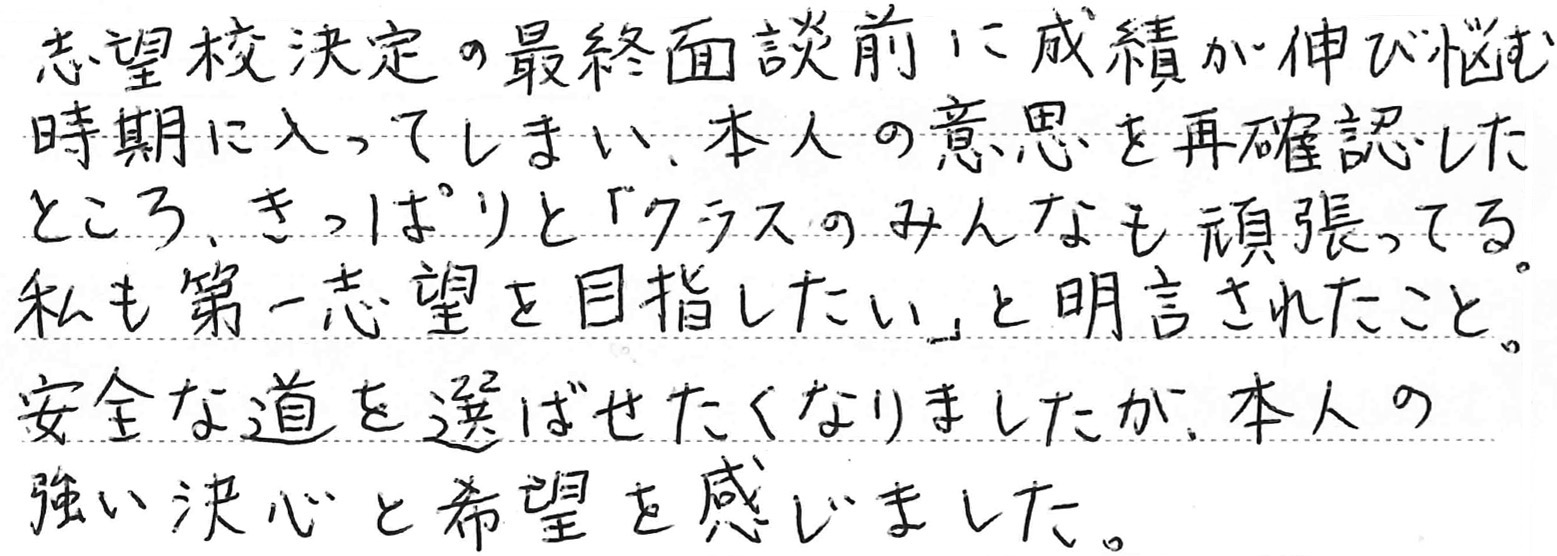 志望校決定の最終面談前に成績が伸び悩む
時期に入ってしまい、本人の意思を再確認した
ところ、きっぱりと「クラスのみんなも頑張ってる。
私も第一志望を目指したい」と明言されたこと。
安全な道を選ばせたくなりましたが、本人の
強い決心と希望を感じました。